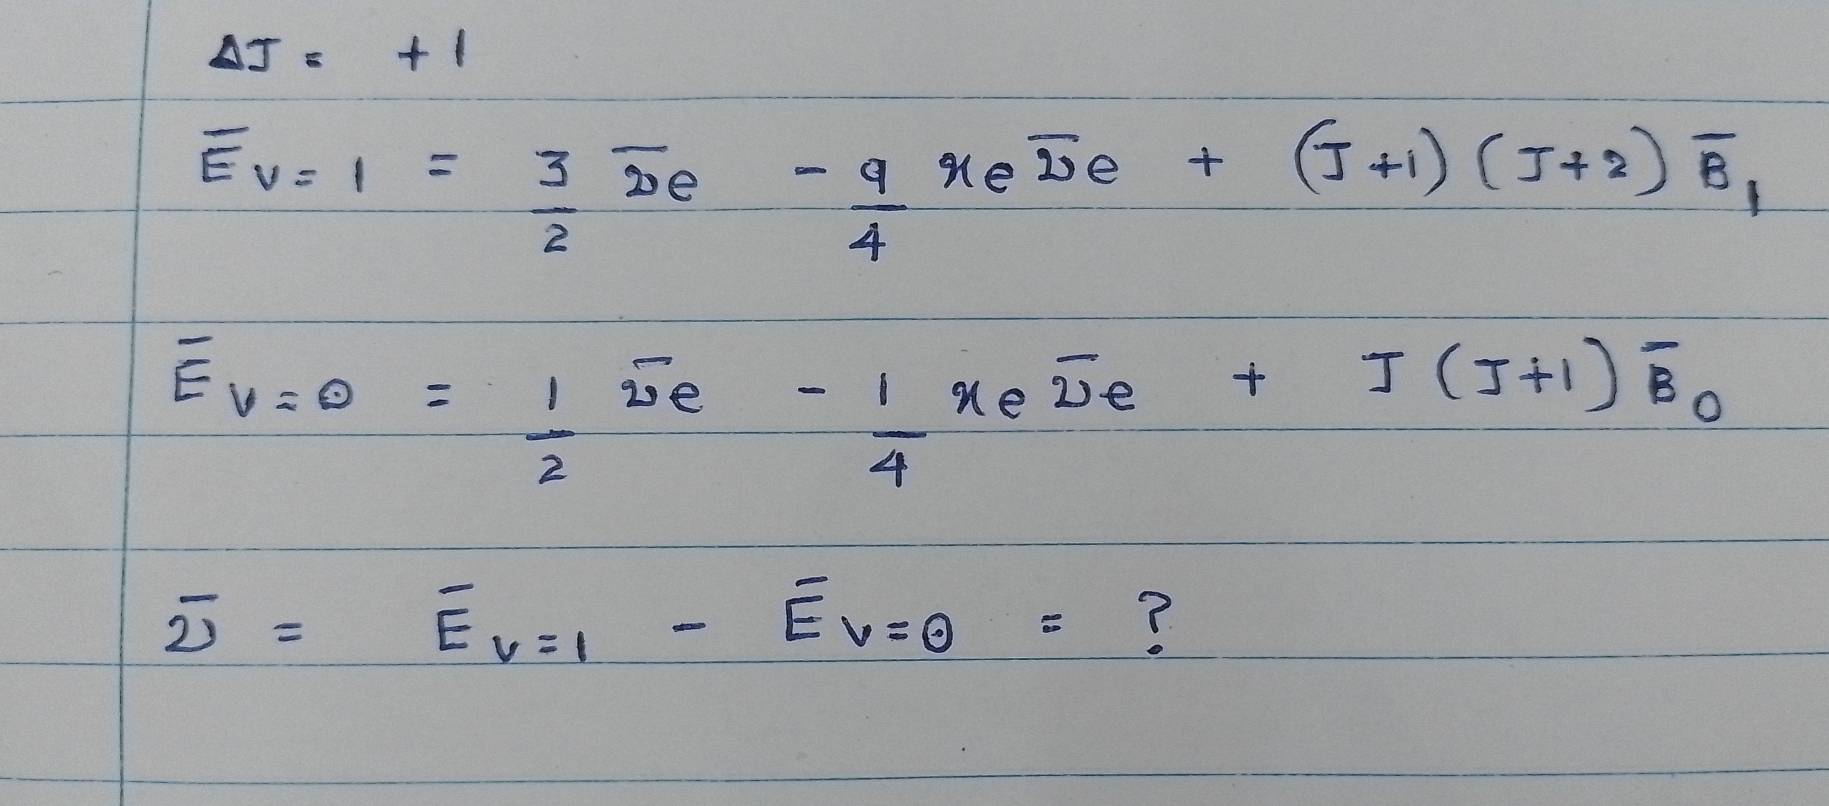 ΔJ = +1
Ē v=1 = 3/2 ν̄e - 9/4 xe ν̄e + (J+1) (J+2) B̄1
Ē v=0 = 1/2 ν̄e - 1/4 xe ν̄e + J (J+1) B̄0
ν̄ = Ē v=1 - Ē v=0 = ?